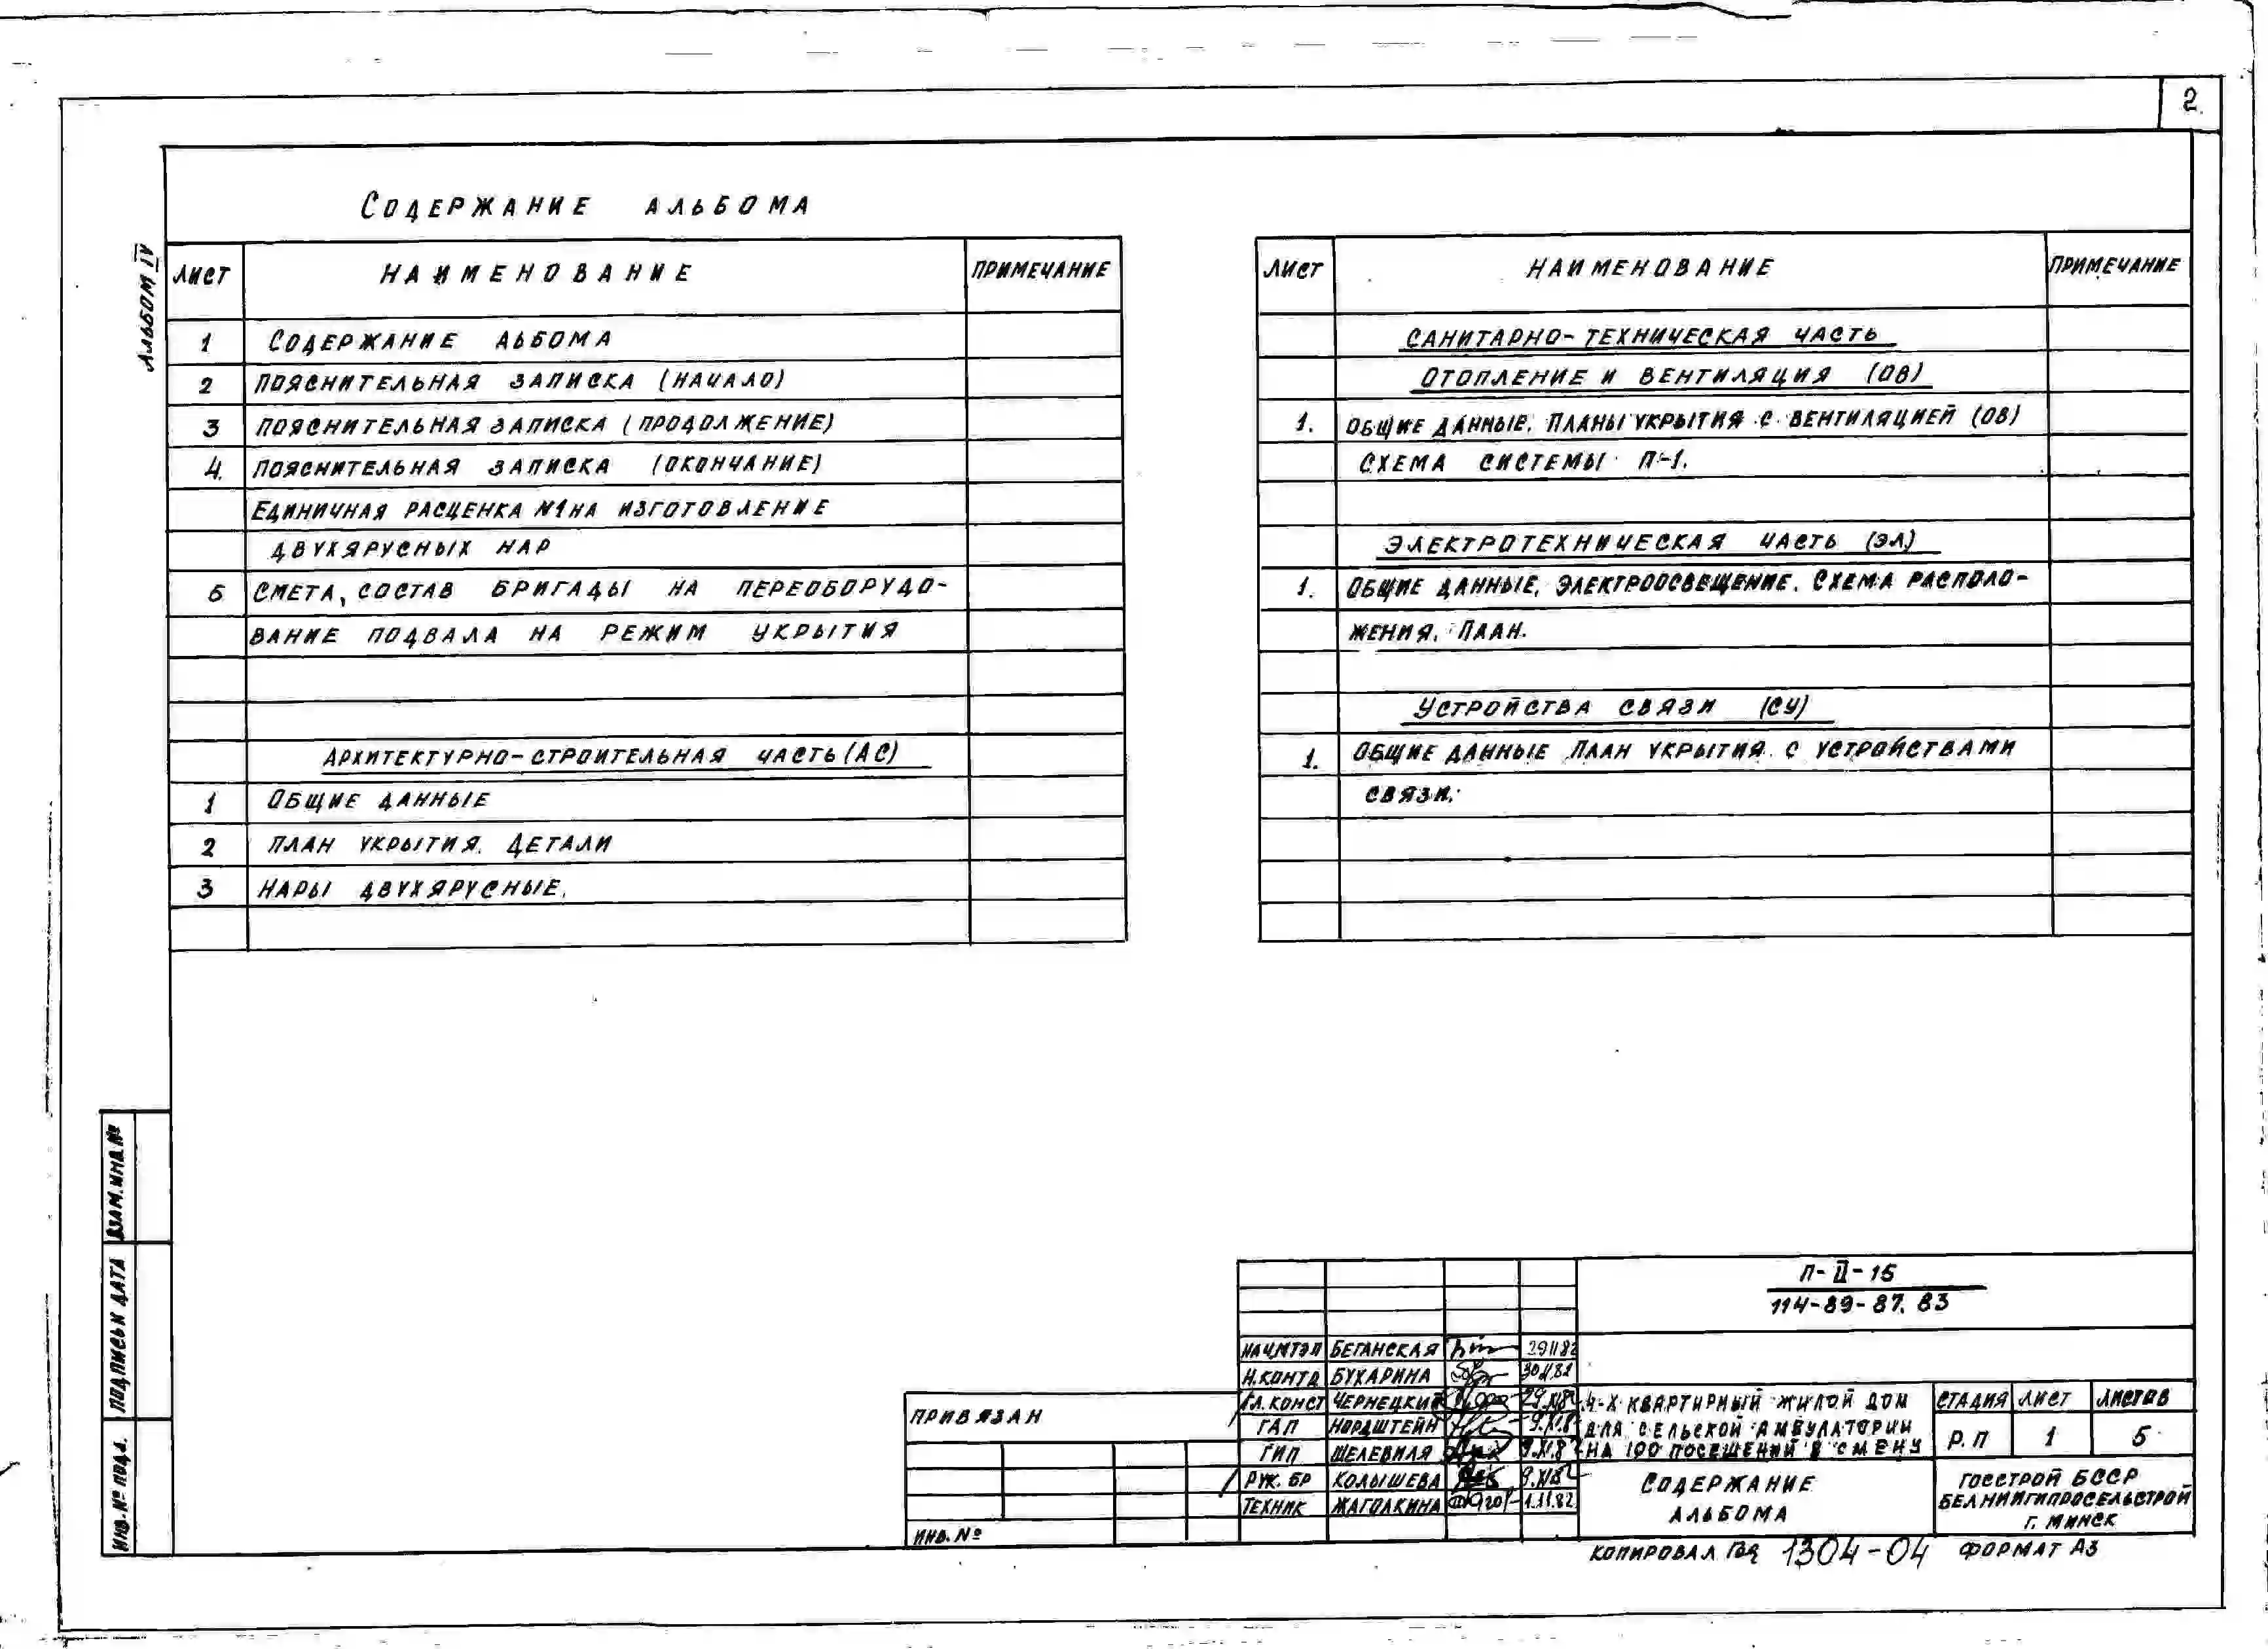 2.
Содержание альбома
Альбом IV
Лист Наименование Примечание
1 Содержание аьбома
2 Пояснительная записка (начало)
3 Пояснительная записка (продолжение)
4. Пояснительная записка (окончание)
Единичная расценка №1 на изготовление
двухярусных нар
5 Смета, состав бригады на переоборудо-
вание подвала на режим укрытия
Архитектурно-строительная часть (АС)
1 Общие данные
2 План укрытия. Детали
3 Нары двухярусные.
Лист Наименование Примечание
Санитарно-техническая часть
Отопление и вентиляция (ОВ)
1. Общие данные. Планы укрытия с вентиляцией (ОВ)
Схема системы П-1.
Электротехническая часть (ЭЛ)
1. Общие данные. Электроосвещение. Схема располо-
жения. План.
Устройства связи (СУ)
1. Общие данные План укрытия с устройствами
связи.
Взам. инв №
Подпись и дата
Инв. № подл.
Привязан
Инв. №
П-II-15
114-89-87.83
Нач.МТЭП Беганская 29 11 82
Н.контр Бухарина
Гл. конст Чернецкий
ГАП Нордштейн
ГИП Шелевиля
Рук. бр Колышева
Техник Жаголкина 1.11.82
4-х квартирный жилой дом
для сельской амбулатории
на 100 посещений в смену
Стадия Лист Листов
Р.П 1 5
Содержание
альбома
Госстрой БССР
Белниигипросельстрой
г. Минск
Копировал 1304-04 Формат А3